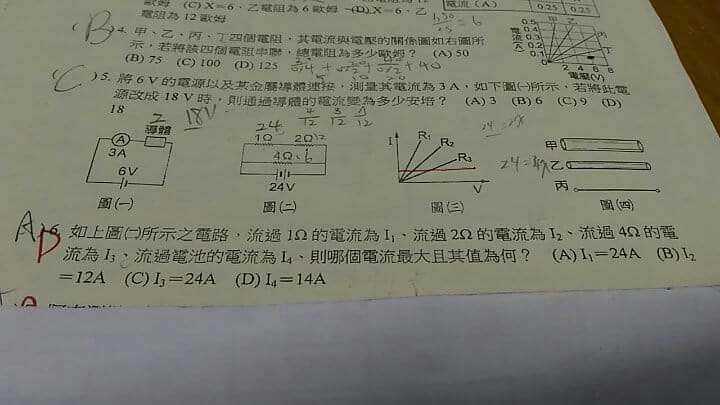 歐姆 (C) X=6,乙電阻為 6 歐姆 (D) X=6,乙
電阻為 12 歐姆
電流(A) 0.25 0.25
(B) 4. 甲、乙、丙、丁四個電阻,其電流與電壓的關係圖如右圖所
示,若將該四個電阻串聯,總電阻為多少歐姆? (A) 50
(B) 75 (C) 100 (D) 125
電流(A)
0.5
0.4
0.3
0.2
0.1
0 2 4 6 8
電壓(V)
甲 乙 丙 丁
(C) 5. 將 6 V 的電源以及某金屬導體連接,測量其電流為 3 A,如下圖㈠所示,若將此電
源改成 18 V 時,則通過導體的電流變為多少安培? (A) 3 (B) 6 (C) 9 (D)
18
2 18V
A 3A 導體 6V
圖(一)
24
1Ω 2Ω 12
4Ω 6
24V
圖(二)
I R₁ R₂ R₃ V
圖(三)
甲
乙
丙
圖(四)
A D 6. 如上圖㈡所示之電路,流過 1Ω 的電流為 I₁、流過 2Ω 的電流為 I₂、流過 4Ω 的電
流為 I₃、流過電池的電流為 I₄、則哪個電流最大且其值為何? (A) I₁=24A (B) I₂
=12A (C) I₃=24A (D) I₄=14A